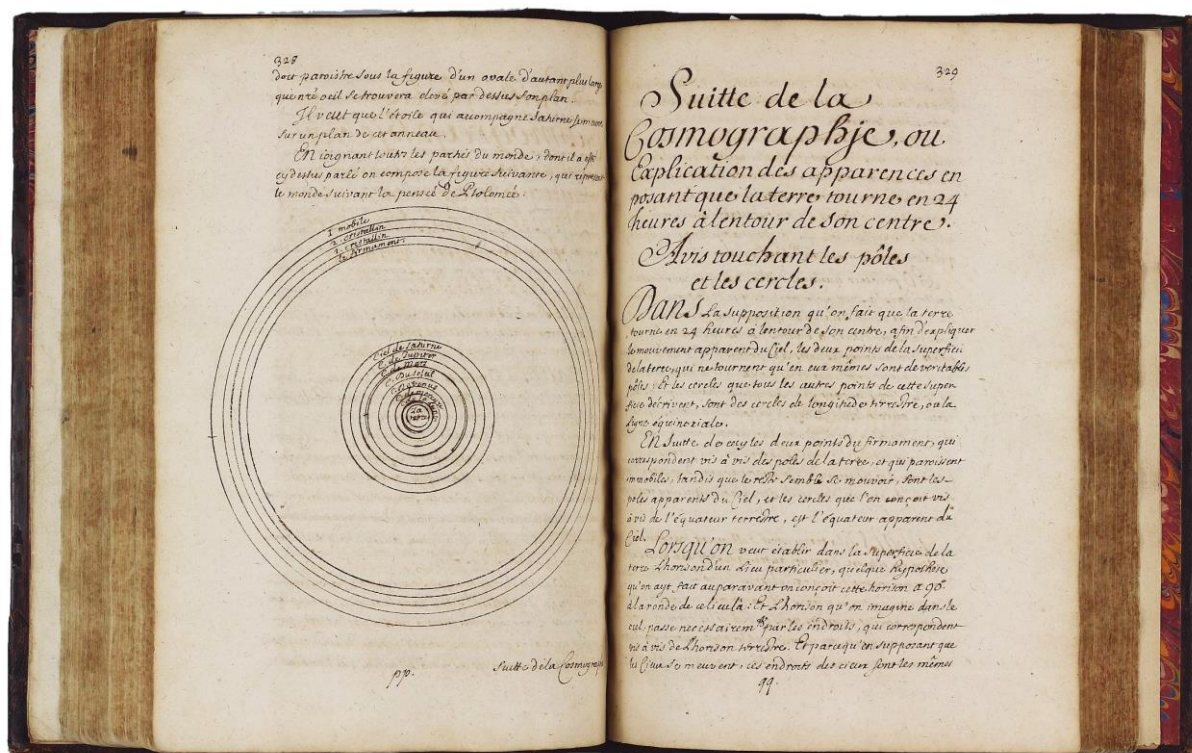 328
doit paroistre sous la figure d'un ovale d'autant plus long
que nre oeil se trouvera elevé par dessus son plan.
Il veut que l'étoile qui accompagne Saturne se meuve
sur un plan de cet anneau.
EN joignant toutes les parties du monde, dont il a esté
cy dessus parlé on compose la figure suivante, qui represente
le monde suivant la pensée de Ptolomée.
1 mobile
2. cristallin
1. cristallin
le firmament.
Ciel de Saturne
C. de Jupiter
C. de Mars
C. Du Soleil
C. de Venus
La
terre
pp.
Suitte de la Cosmograph
329
Suitte de la
Cosmographje, ou
Explication des apparences en
posant que la terre tourne en 24
heures à lentour de son centre.
Avis touchant les pôles
et les cercles.
DANS La supposition qu'on fait que la terre
tourne en 24 heures à lentour de son centre, afin d'expliquer
le mouvement apparent du Ciel, les deux points de la superficie
de la terre, qui ne tournent qu'en eux mêmes sont de veritables
pôles: Et les cercles que tous les autres points de cette super
ficie décrivent, sont des cercles de longitude terrestre, ou la
ligne équinoxiale.
EN Suitte de cecy les deux points du firmament, qui
correspondent vis à vis des poles de la terre, et qui paroissent
immobiles, tandis que le reste semble se mouvoir, sont les
poles apparents du Ciel, et les cercles que l'on conçoit vis
à vis de l'équateur terrestre, est l'équateur apparent du
Ciel.
LORSQU'ON veut établir dans la superficie de la
terre L'horison d'un Lieu particulier, quelque hypothese
qu'on ayt fait auparavant on conçoit cette horison a 90d
à la ronde de ce lieu là: Et L'horison qu'on imagine dans le
ciel, passe necessairemt par les endroits, qui correspondent
vis à vis de L'horison terrestre. Et parcequ'en supposant que
les Cieux se meuvent, ces endroits des cieux sont les mêmes
qq.